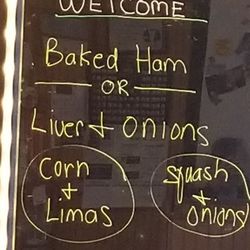 WELCOME
Baked Ham
OR
Liver & onions
Corn
&
Limas
Squash
&
Onions